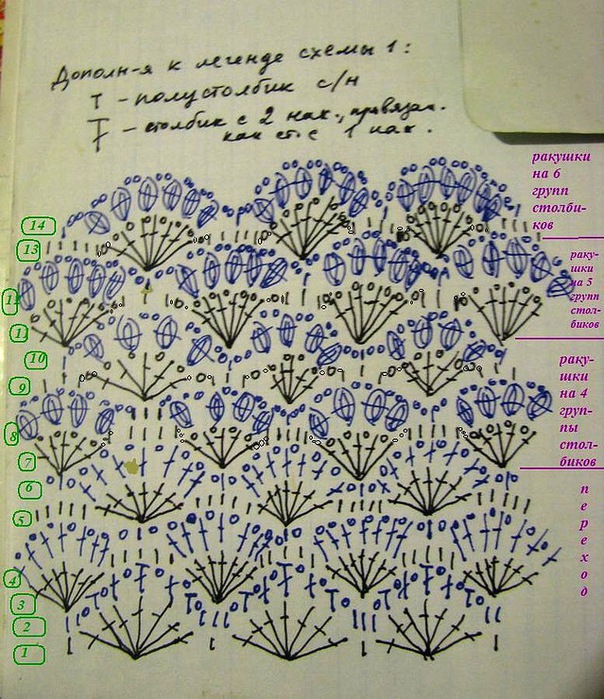 Дополн-я к легенде схемы 1:
Т - полустолбик с/н
- столбик с 2 нак., провязан.
как ст. с 1 нак.
ракушки
на 6
групп
столби-
ков
14
13
раку-
шки
на 5
групп
стол-
биков
11
1
10
9
раку-
шки
на 4
груп-
пы
стол-
биков
8
7
6
5
п
е
р
е
х
о
д
4
3
2
1